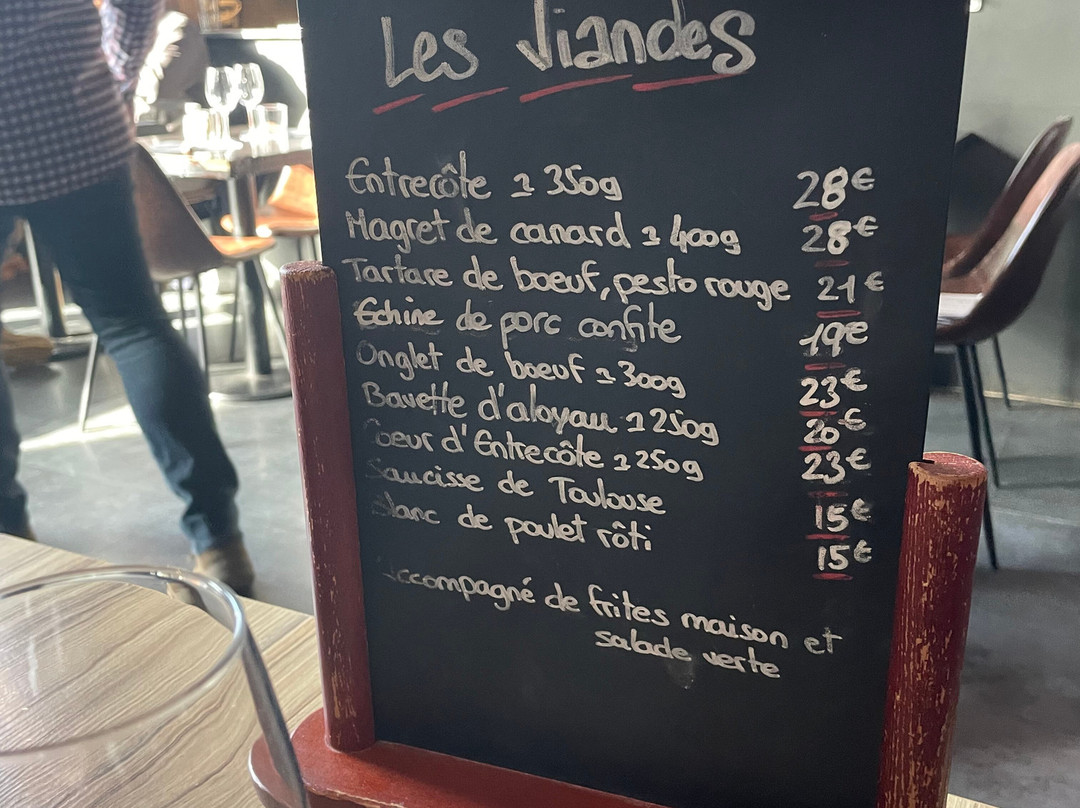 Les Viandes
Entrecôte ± 350g 28€
Magret de canard ± 400g 28€
Tartare de boeuf, pesto rouge 21€
Echine de porc confite 19€
Onglet de boeuf ± 300g 23€
Bavette d'aloyau ± 250g 20€
Coeur d'Entrecôte ± 250g 23€
Saucisse de Toulouse 15€
Blanc de poulet rôti 15€
Accompagné de frites maison et
salade verte